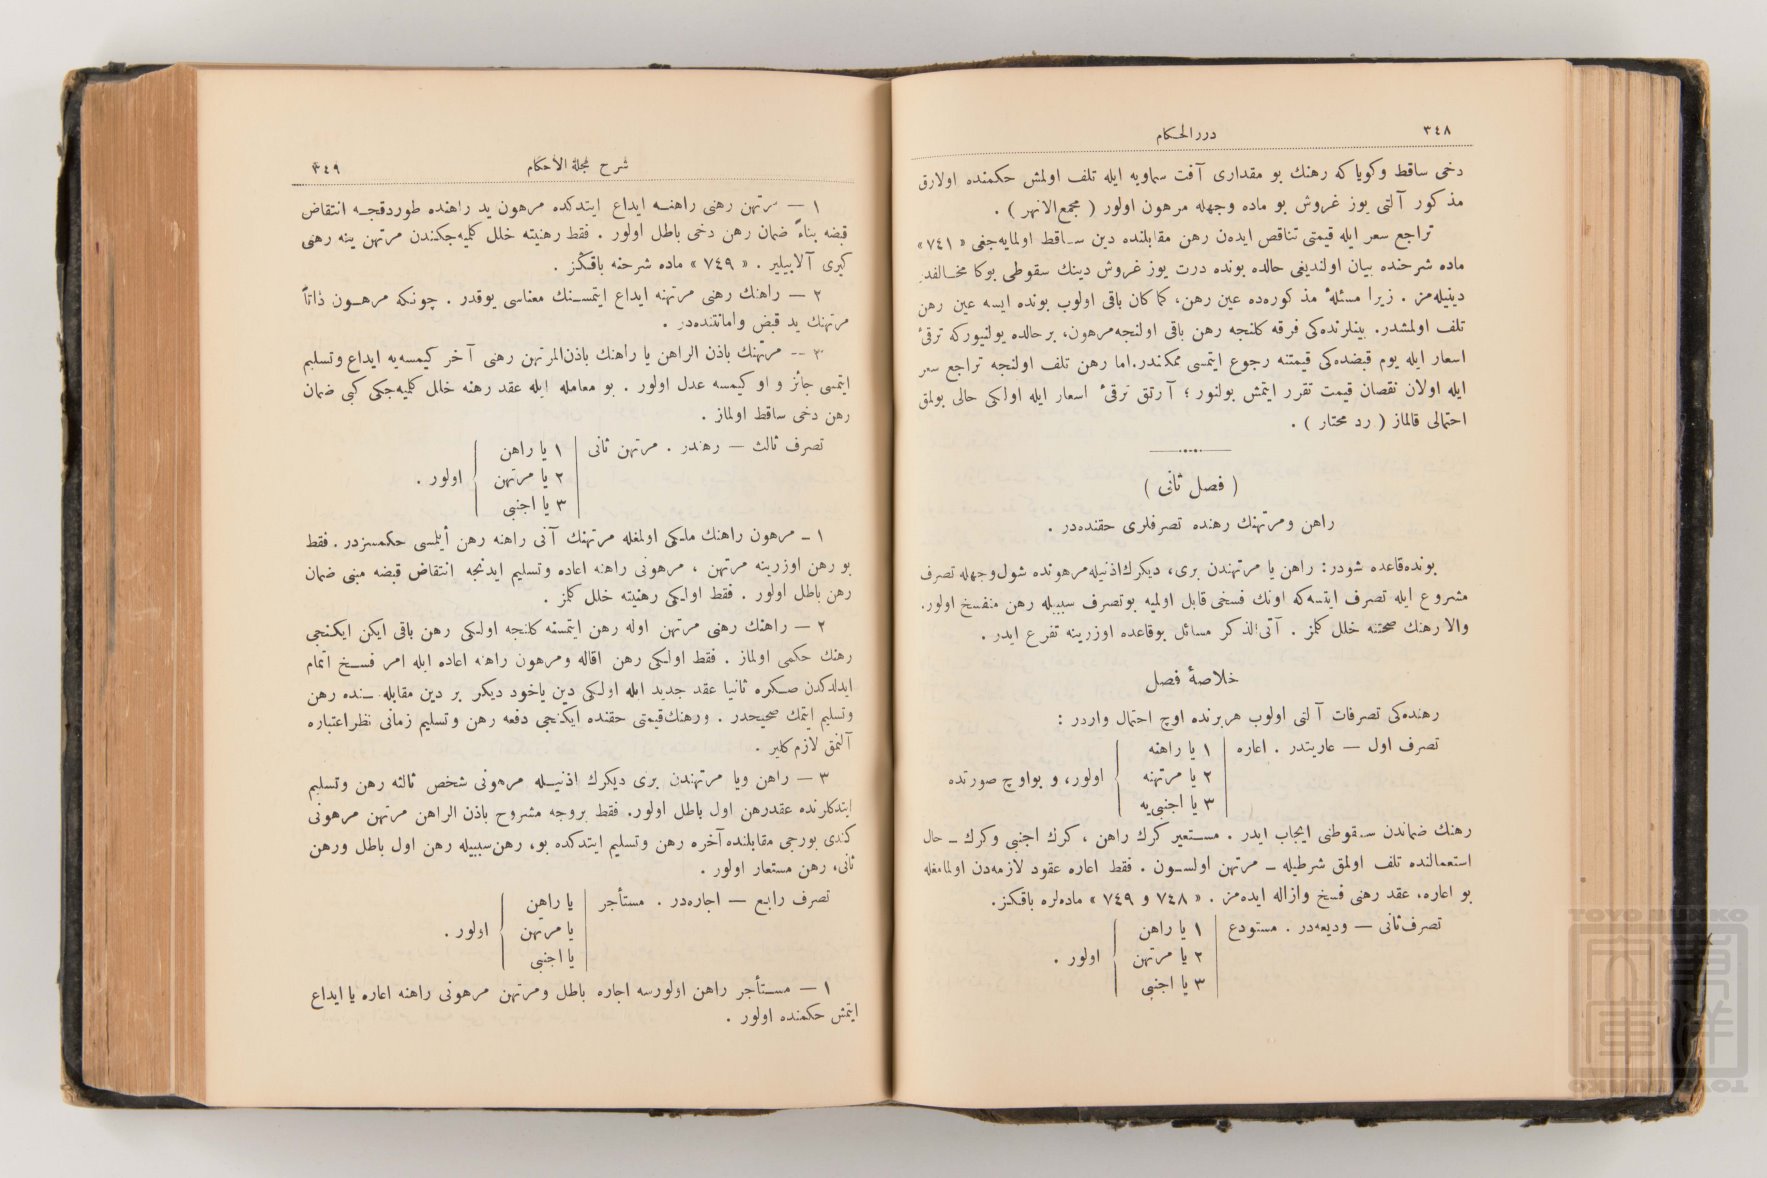 ٣٤٨
درر الحكام
دخی ساقط وكويا كه رهنك بو مقداری آفت سماويه ايله تلف اولمش حكمنده اولارق
مذكور آلتی يوز غروش بو ماده وجهله مرهون اولور ( مجمع الانهر ) .
تراجع سعر ايله قيمتی تناقص ايدەن رهن مقابلنده دين ساقط اولمايەجغی « ٧٤١ »
ماده شرحنده بيان اولنديغی حالده بونده درت يوز غروش دينك سقوطی بوكا مخالفدر
دينيلەمز . زيرا مسئلۀ مذكورەده عين رهن، كما كان باقی اولوب بونده ايسه عين رهن
تلف اولمشدر. بينلرندەكی فرقه كلنجه رهن باقی اولنجه مرهون، بر حالده بولنيوركه ترقیٔ
اسعار ايله يوم قبضدەكی قيمتنه رجوع ايتمسی ممكندر. اما رهن تلف اولنجه تراجع سعر
ايله اولان نقصان قيمت تقرر ايتمش بولنور ؛ آرتق ترقیٔ اسعار ايله اولكی حالی بولمق
احتمالی قالماز ( رد محتار ) .
( فصل ثانی )
راهن ومرتهنك رهنده تصرفلری حقندەدر .
بونده قاعده شودر: راهن يا مرتهندن بری، ديكرك اذنيله مرهونده شول وجهله تصرف
مشروع ايله تصرف ايتسەكه اونك فسخی قابل اولميه بوتصرف سببيله رهن منفسخ اولور.
والا رهنك صحتنه خلل كلمز . آتی الذكر مسائل بوقاعده اوزرينه تفرع ايدر .
خلاصۀ فصل
رهندەكی تصرفات آلتی اولوب هربرنده اوچ احتمال واردر :
تصرف اول — عاريتدر . اعاره
١ يا راهنه
٢ يا مرتهنه
٣ يا اجنبی‌يه
اولور، و بواوچ صورتده
رهنك ضماندن سقوطنی ايجاب ايدر . مستعير كرك راهن ، كرك اجنبی وكرك ــ حال
استعمالنده تلف اولمق شرطيله ــ مرتهن اولسون . فقط اعاره عقود لازمەدن اولمامغله
بو اعاره، عقد رهنی فسخ وازاله ايدەمز . « ٧٤٨ و ٧٤٩ » مادەلره باقكز.
تصرف ثانی — وديعەدر . مستودع
١ يا راهن
٢ يا مرتهن
٣ يا اجنبی
اولور .
شرح مجلة الأحكام
٣٤٩
١ — مرتهن رهنی راهنه ايداع ايتدكده مرهون يد راهنده طوردقجه انتقاض
قبضه بناءً ضمان رهن دخی باطل اولور . فقط رهنيته خلل كلميەجكندن مرتهن ينه رهنی
كيری آلابيلير . « ٧٤٩ » ماده شرحنه باقكز .
٢ — راهنك رهنی مرتهنه ايداع ايتمسنك معناسی يوقدر . چونكه مرهون ذاتاً
مرتهنك يد قبض وامانتندەدر .
٣ — مرتهنك باذن الراهن يا راهنك باذن المرتهن رهنی آخر كيمسەيه ايداع وتسليم
ايتمسی جائز و او كيمسه عدل اولور . بو معامله ايله عقد رهنه خلل كلميەجكی كبی ضمان
رهن دخی ساقط اولماز .
تصرف ثالث — رهندر . مرتهن ثانی
١ يا راهن
٢ يا مرتهن
٣ يا اجنبی
اولور .
١ ــ مرهون راهنك ملكی اولمغله مرتهنك آنی راهنه رهن ايلمسی حكمسزدر . فقط
بو رهن اوزرينه مرتهن ، مرهونی راهنه اعاده وتسليم ايدنجه انتقاض قبضه مبنی ضمان
رهن باطل اولور . فقط اولكی رهنيته خلل كلمز .
٢ — راهنك رهنی مرتهن اوله رهن ايتمسنه كلنجه اولكی رهن باقی ايكن ايكنجی
رهنك حكمی اولماز . فقط اولكی رهن اقاله ومرهون راهنه اعاده ايله امر فسخ اتمام
ايدلدكدن صكره ثانيا عقد جديد ايله اولكی دين ياخود ديكر بر دين مقابلەسنده رهن
وتسليم ايتمك صحيحدر . ورهنك قيمتی حقنده ايكنجی دفعه رهن وتسليم زمانی نظر اعتباره
آلنمق لازم كلير .
٣ — راهن ويا مرتهندن بری ديكرك اذنيله مرهونی شخص ثالثه رهن وتسليم
ايتدكلرنده عقدرهن اول باطل اولور. فقط بروجه مشروح باذن الراهن مرتهن مرهونی
كندی بورجی مقابلنده آخره رهن وتسليم ايتدكده بو، رهن سببيله رهن اول باطل ورهن
ثانی، رهن مستعار اولور .
تصرف رابع — اجارەدر . مستأجر
يا راهن
يا مرتهن
يا اجنبی
اولور .
١ — مستأجر راهن اولورسه اجاره باطل ومرتهن مرهونی راهنه اعاره يا ايداع
ايتمش حكمنده اولور .
TOYO BUNKO
東洋文庫